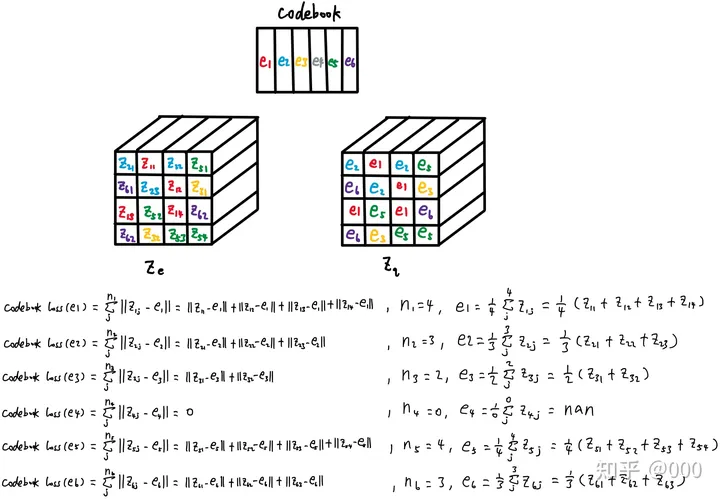 codebook
e1 e2 e3 e4 e5 e6
z21 z11 z22 z51
z61 z23 z12 z31
z13 z52 z14 z62
z62 z32 z53 z54
Ze
e2 e1 e2 e5
e6 e2 e1 e3
e1 e5 e1 e6
e6 e3 e5 e5
Zq
codebook loss(e1) = Σ_j^{n1} ||z1j - e1|| = ||z11-e1|| + ||z12-e1|| + ||z13-e1|| + ||z14-e1|| , n1=4, e1 = 1/4 Σ_j^4 z1j = 1/4 (z11 + z12 + z13 + z14)
codebook loss(e2) = Σ_j^{n2} ||z2j - e2|| = ||z21-e2|| + ||z22-e2|| + ||z23-e2|| , n2=3, e2 = 1/3 Σ_j^3 z2j = 1/3 (z21 + z22 + z23)
codebook loss(e3) = Σ_j ||z3j - e3|| = ||z31-e3|| + ||z32-e3|| , n3=2, e3 = 1/2 Σ_j^2 z3j = 1/2 (z31 + z32)
codebook loss(e4) = Σ_j ||z4j - e4|| = 0 , n4=0, e4 = 1/0 Σ_j^0 z4j = nan
codebook loss(e5) = Σ_j ||z5j - e5|| = ||z51-e5|| + ||z52-e5|| + ||z53-e5|| + ||z54-e5|| , n5=4, e5 = 1/4 Σ_j^4 z5j = 1/4 (z51 + z52 + z53 + z54)
codebook loss(e6) = Σ_j ||z6j - e6|| = ||z61-e6|| + ||z62-e6|| + ||z63-e6|| , n6=3, e6 = 1/3 Σ_j^3 z6j = 1/3 (z61 + z62 + z63)
知乎 @000